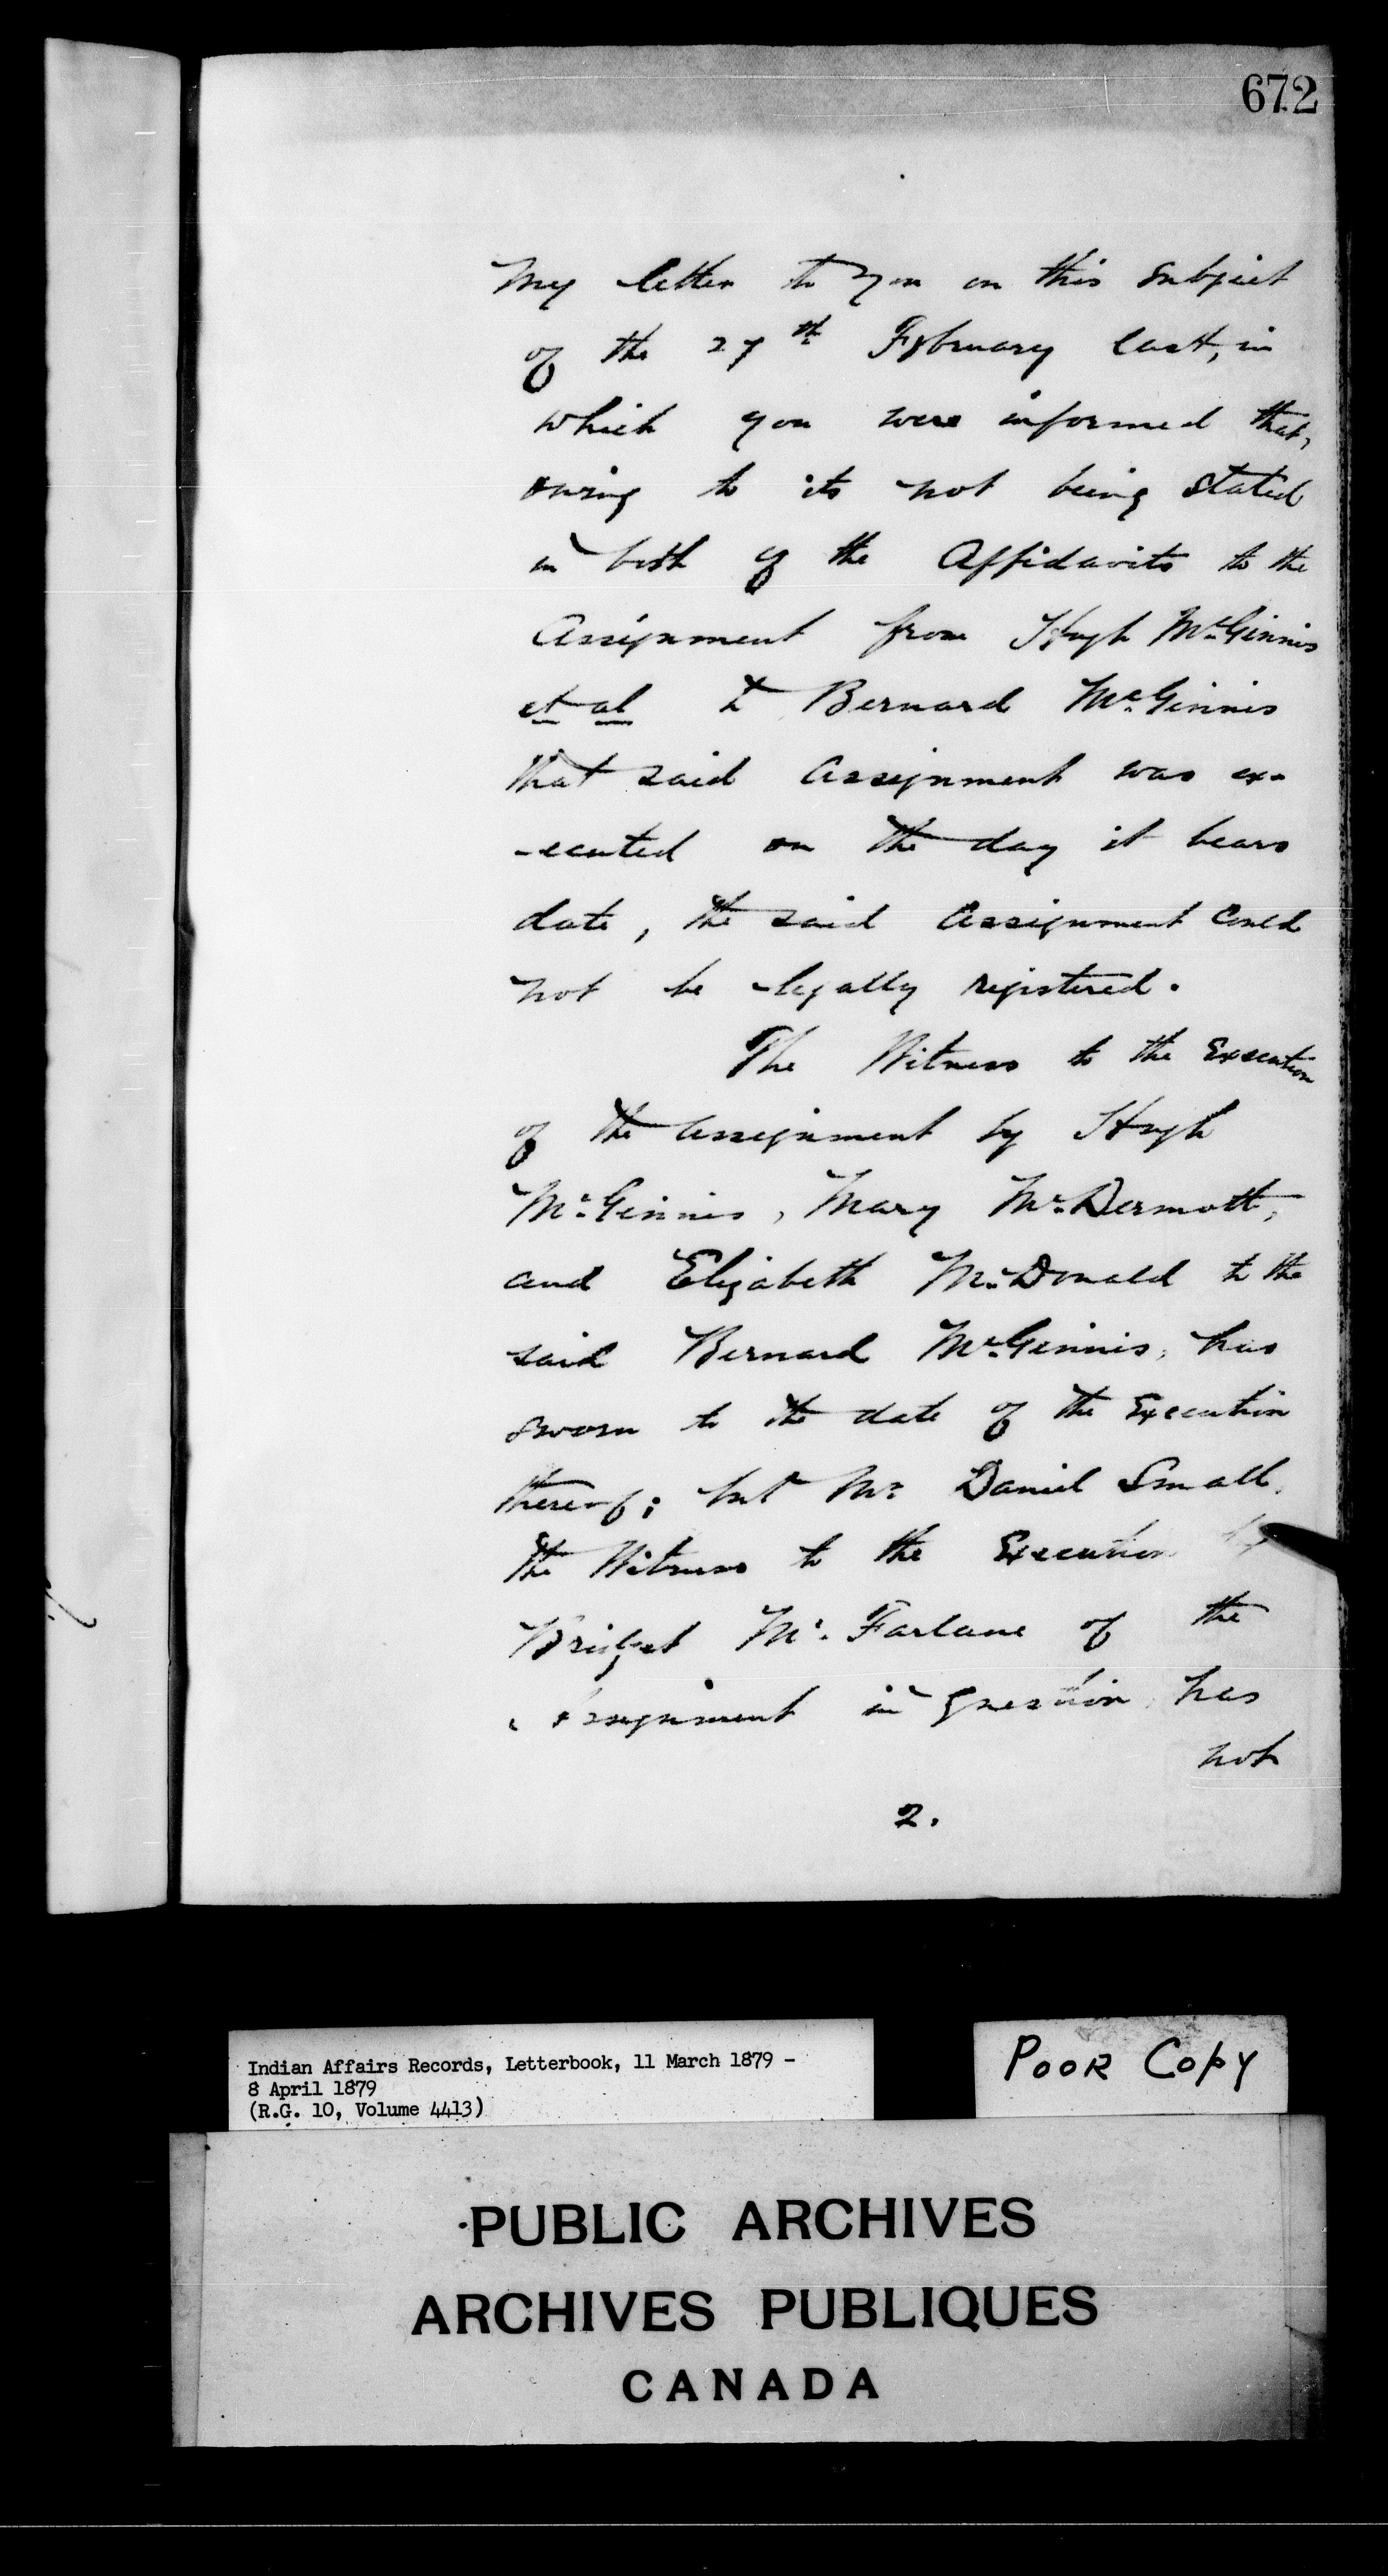 672
My letter to you on this subject
of the 27th February last, in
which you were informed that,
owing to its not being stated
in both of the Affidavits to the
Assignment from Hugh McGinnis
et al to Bernard McGinnis
that said Assignment was ex-
-ecuted on the day it bears
date, the said Assignment could
not be legally registered.
The Witness to the Execution
of the Assignment by Hugh
McGinnis, Mary McDermott,
and Elizabeth McDonald to the
said Bernard McGinnis, has
sworn to the date of the Execution
thereof; but Mr Daniel Small,
the Witness to the Execution by
Bridget McFarlane of the
Assignment in question, has
not
2.
Indian Affairs Records, Letterbook, 11 March 1879 -
8 April 1879
(R.G. 10, Volume 4413)
POOR COPY
PUBLIC ARCHIVES
ARCHIVES PUBLIQUES
CANADA